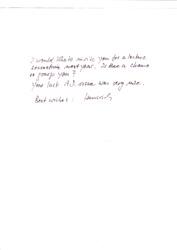 I would like to invite you for a lecture
sometime next year. Is there a chance
to grasp you?
Your last A.I. was very nice.
Best wishes: